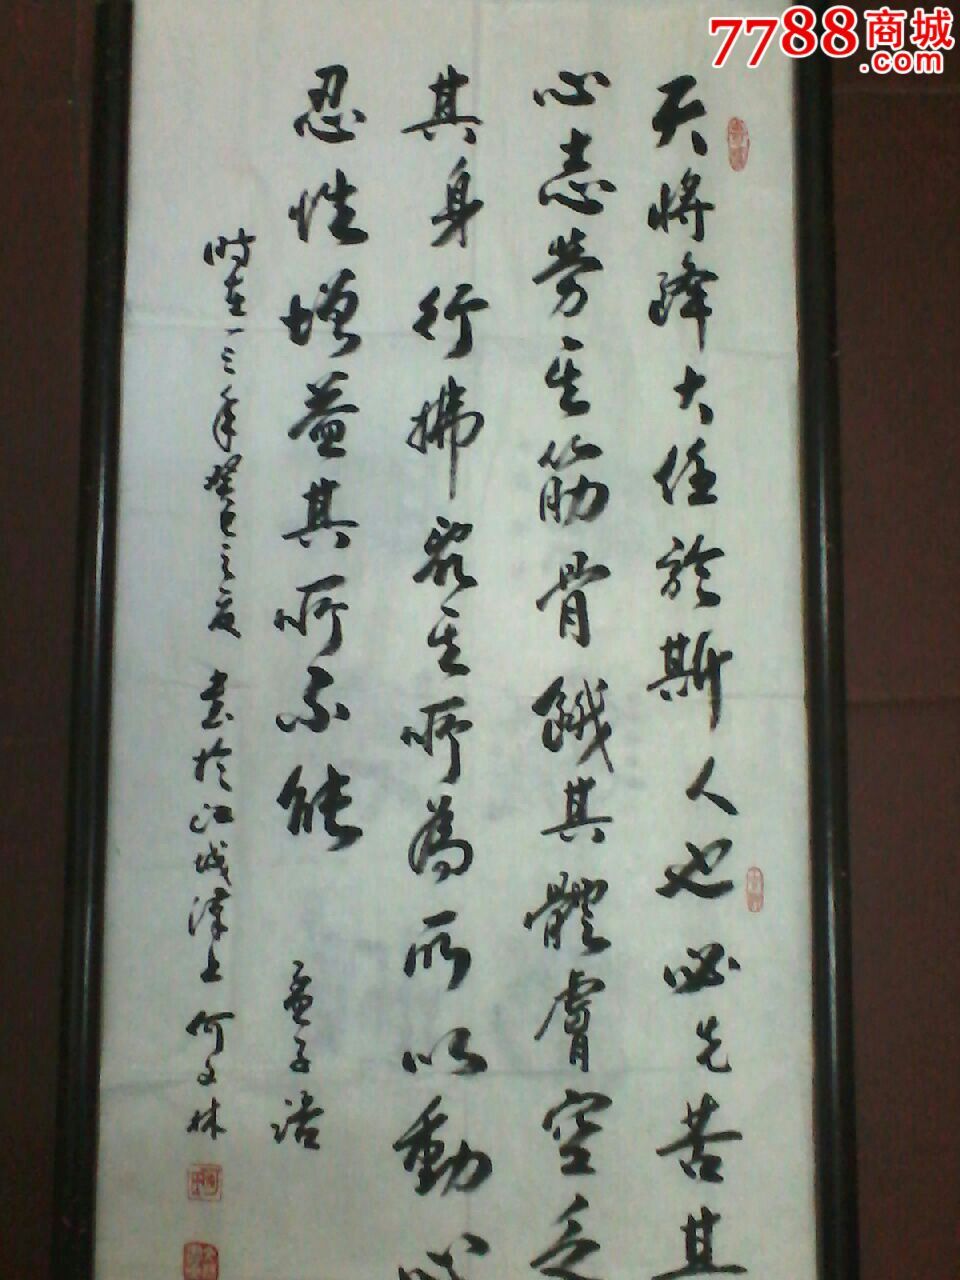 7788商城
.com
天将降大任於斯人也必先苦其
心志劳其筋骨餓其體膚空乏
其身行拂乱其所為所以動心
忍性增益其所不能 孟子语
时在一三年癸巳之夏 书於江城津上何文林